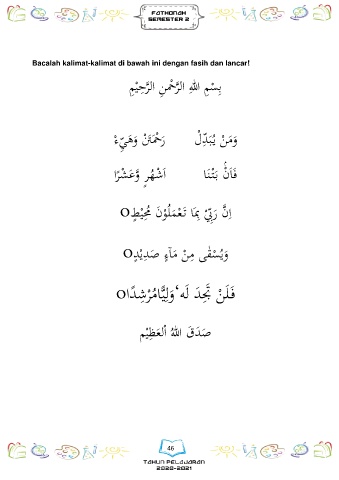 FATHONAH
SEMESTER 2
Bacalah kalimat-kalimat di bawah ini dengan fasih dan lancar!
بِسْمِ اللهِ الرَّحْمٰنِ الرَّحِيْمِ
وَمَنْ يُبَدِّلْ رَحْمَتَنْ وَهَيِّءْ
فَاَنْۢ بَتْنَا اَشْهُرٍ وَّعَشْرًا
اِنَّ رَبِّيْ بِمَا تَعْمَلُوْنَ مُحِيْطٍO
وَيُسْقٰى مِنْ مَآءٍ صَدِيْدٍO
فَلَنْ تَجِدَ لَهٗ وَلِيًّامُرْشِدًاO
صَدَقَ اللهُ الْعَظِيْمِ
46
TAHUN PELAJARAN
2020-2021